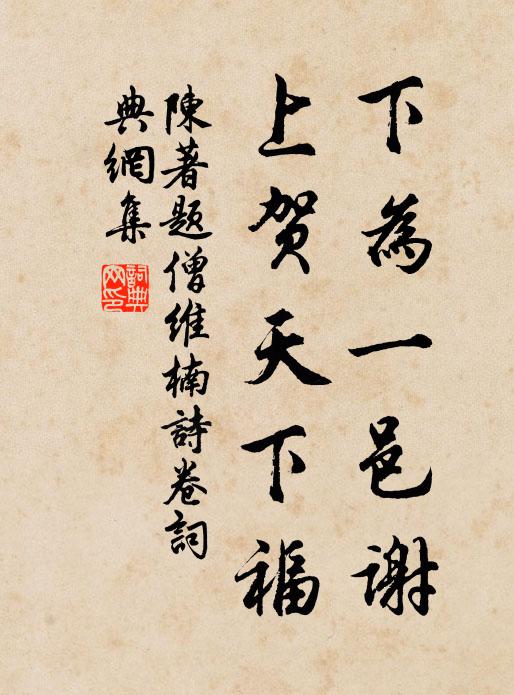 下為一邑謝
上贺天下福
陳著题僧維楠詩卷詞
典網集
詞典網印